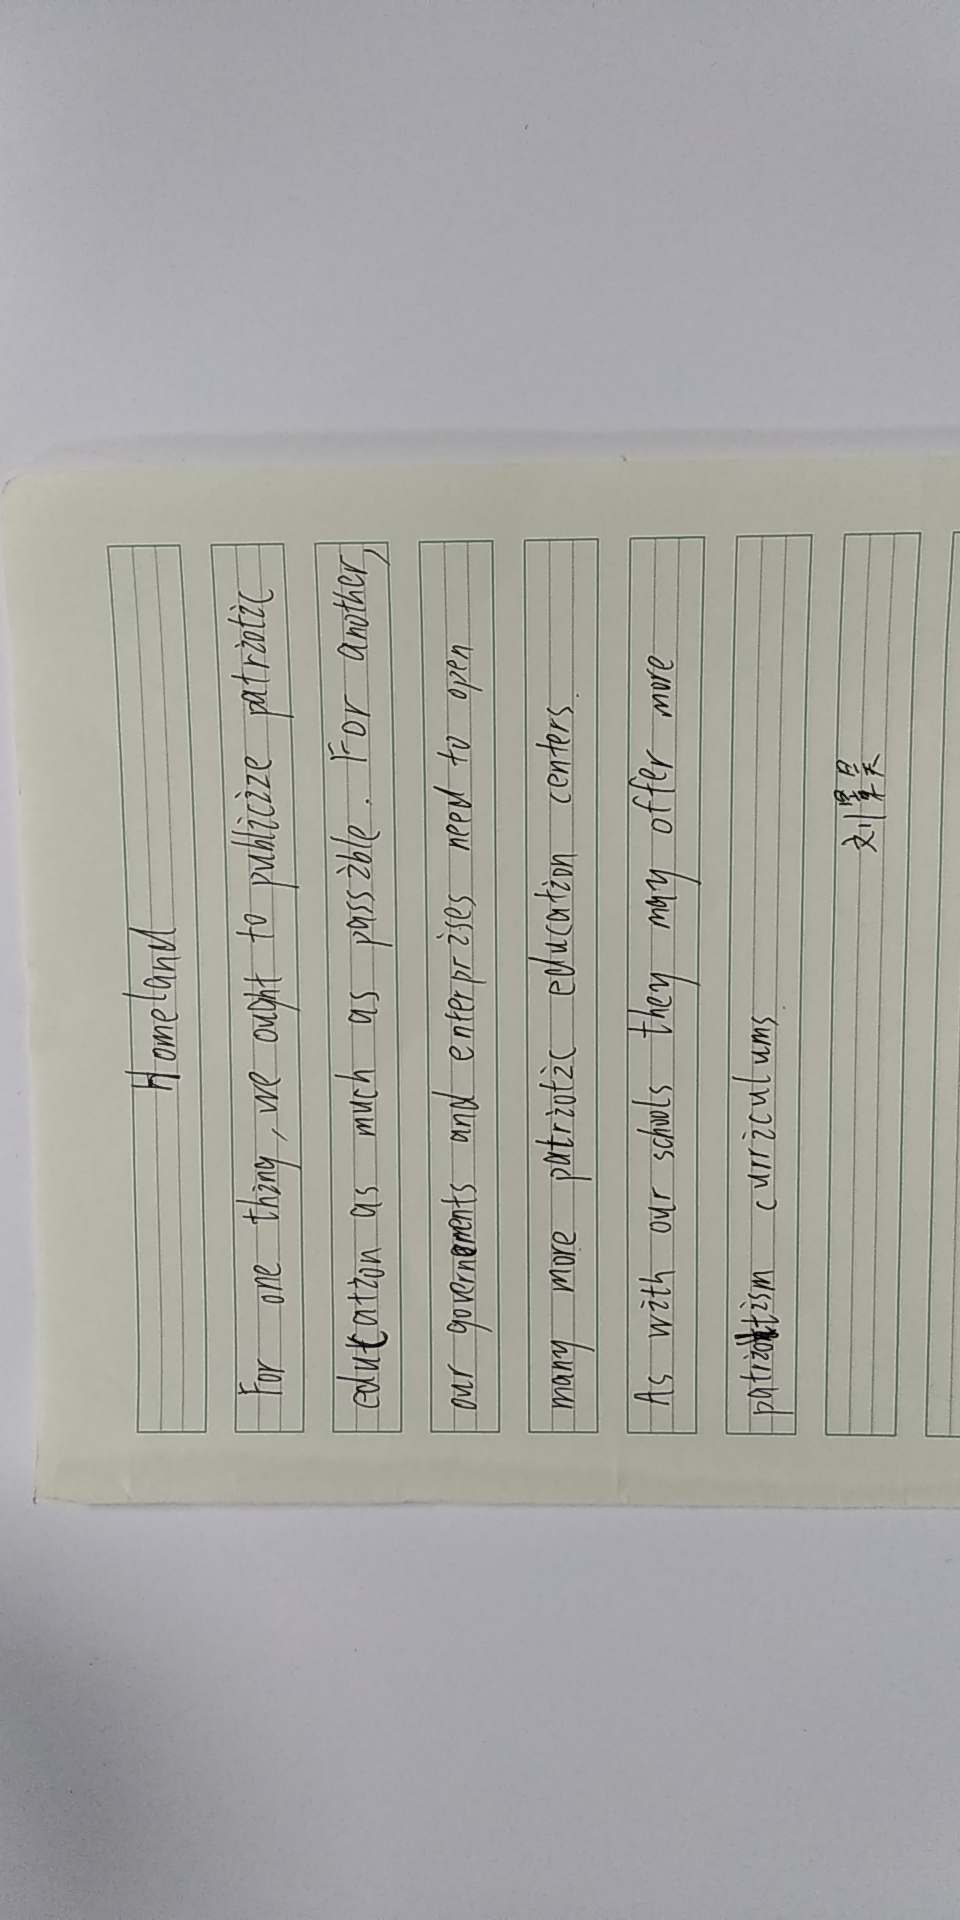 Homeland
For one thing, we ought to publicize patriotic
education as much as passible. For another,
our governments and enterprises need to open
many more patriotic education centers.
As with our schools they many offer more
patriotism curriculums.
刘